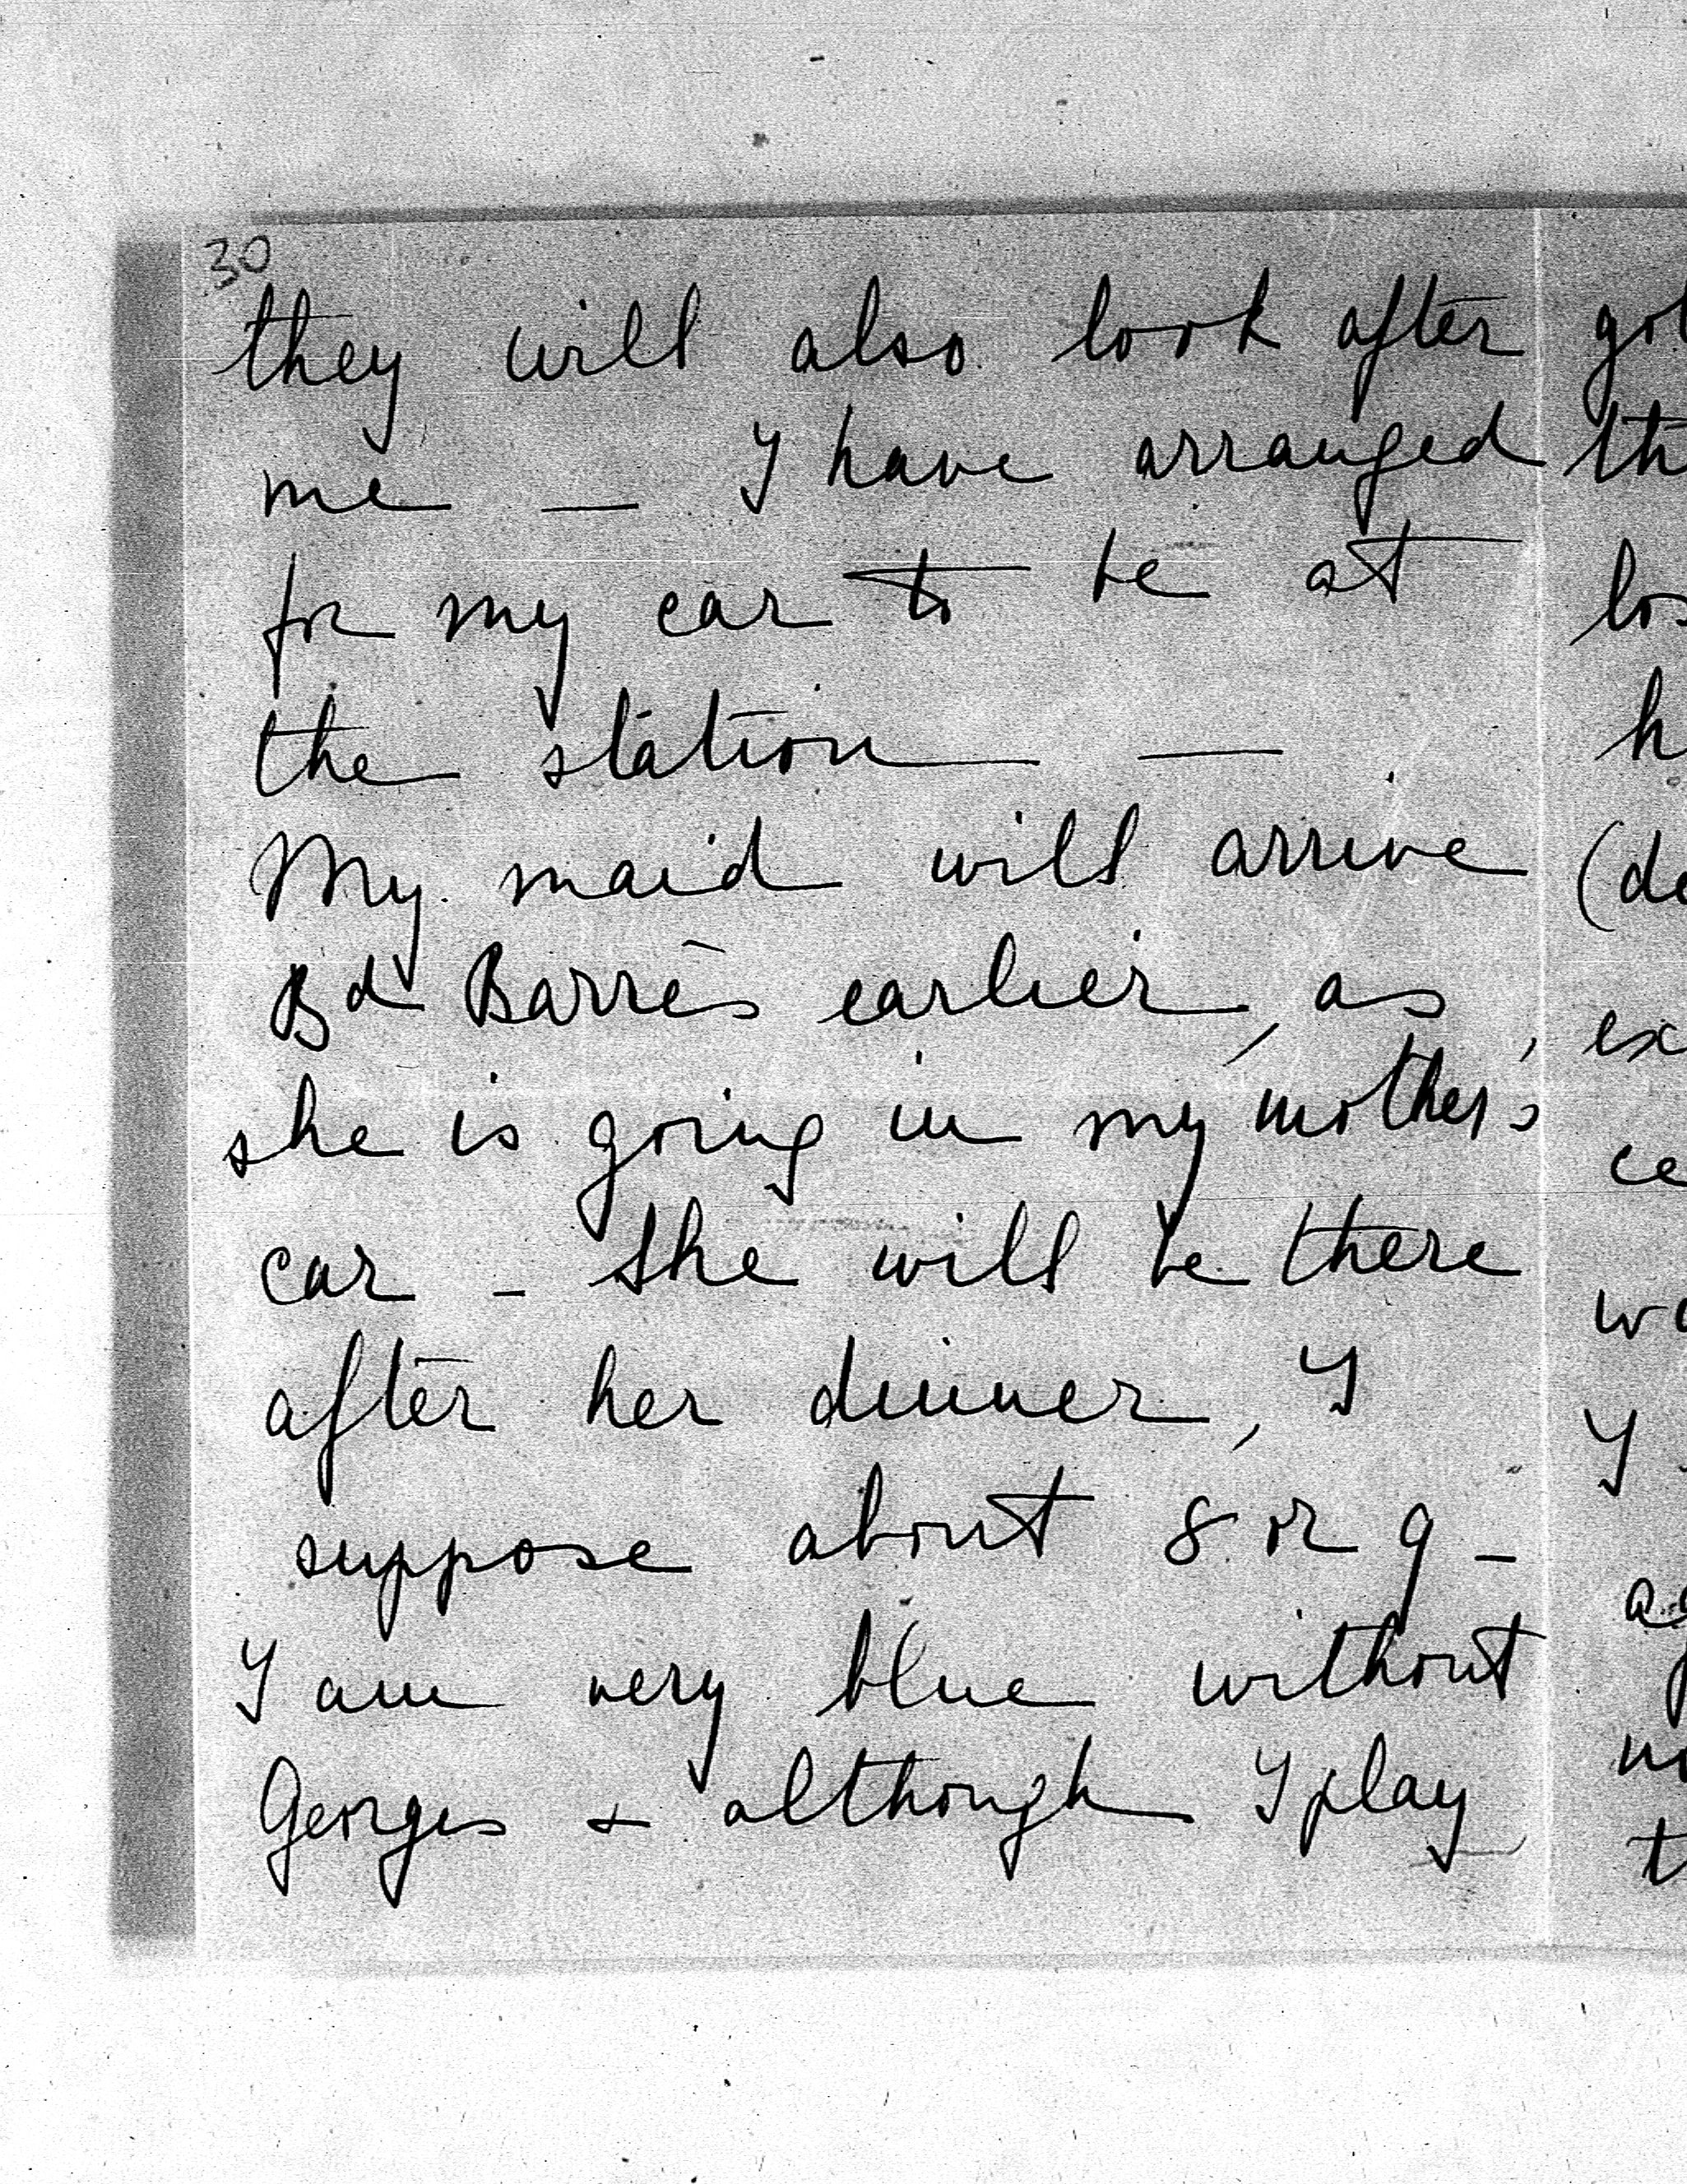 30
they will also look after
me — I have arranged
for my car to be at
the station —
My maid will arrive
Bd Barrès earlier, as
she is going in my mother's
car - She will be there
after her dinner, I
suppose about 8 or 9 -
I am very blue without
Georges + although I play